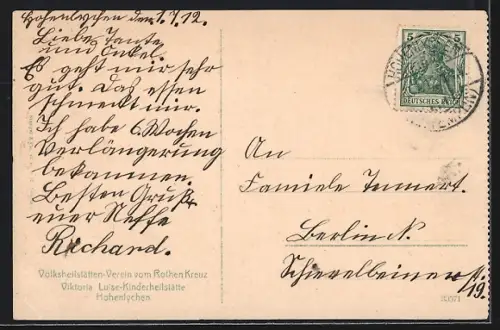 Hohenlychen den 1.7.12.
Liebe Tante
und Onkel.
Es geht mir sehr
gut. Das essen
schmeckt mir.
Ich habe 6 Wochen
verlängerung
bekommen.
Besten Gruß
euer Neffe
Richard.
Volksheilstätten-Verein vom Rothen Kreuz
Viktoria Luise-Kinderheilstätte
Hohenlychen
5 5
DEUTSCHES REICH
An
Famiele Temmert.
Berlin N.
Schievelbeiner
19.